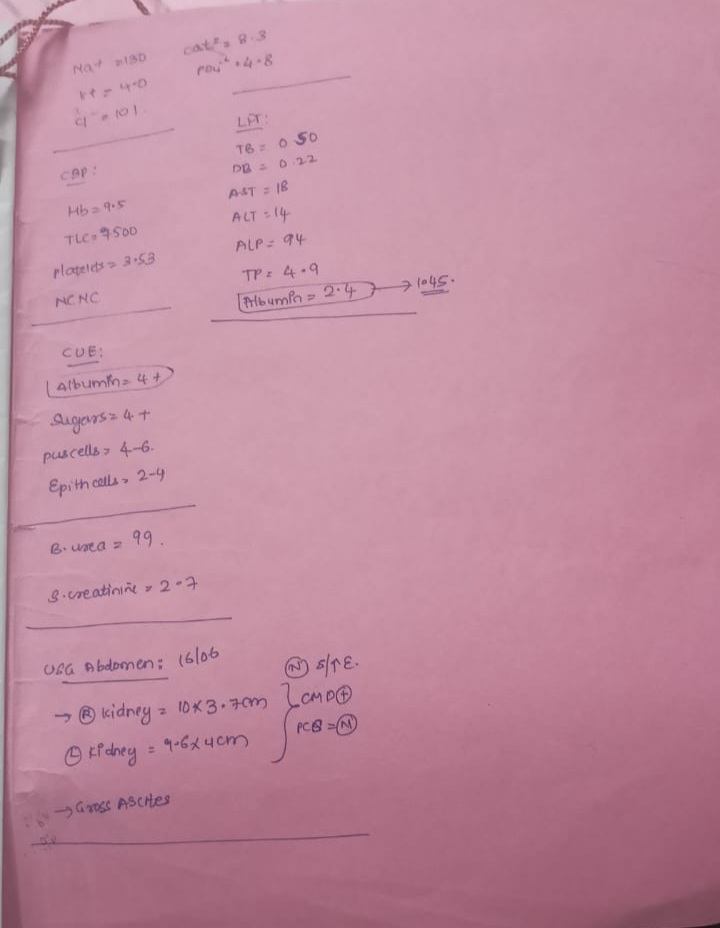 Na+ = 130
K+ = 4.0
Cl- = 101.
Ca+2 = 8.3
PO4+ = 4.8
CBP:
Hb = 9.5
TLC = 9500
platelets = 3.53
NCNC
LFT:
TB = 0.50
DB = 0.22
AST = 18
ALT = 14
ALP = 94
TP = 4.9
Albumin = 2.4 → 1.45.
CUE:
Albumin = 4+
Sugars = 4+
puscells = 4-6.
Epith cells = 2-4
B.urea = 99.
S.creatinine = 2.7
USG Abdomen: 16/06
→ (R) kidney = 10 x 3.7cm
(L) kidney = 9.6 x 4cm
(N) S/↑E.
CMD (+)
PCS = (N)
→ Gross Ascites